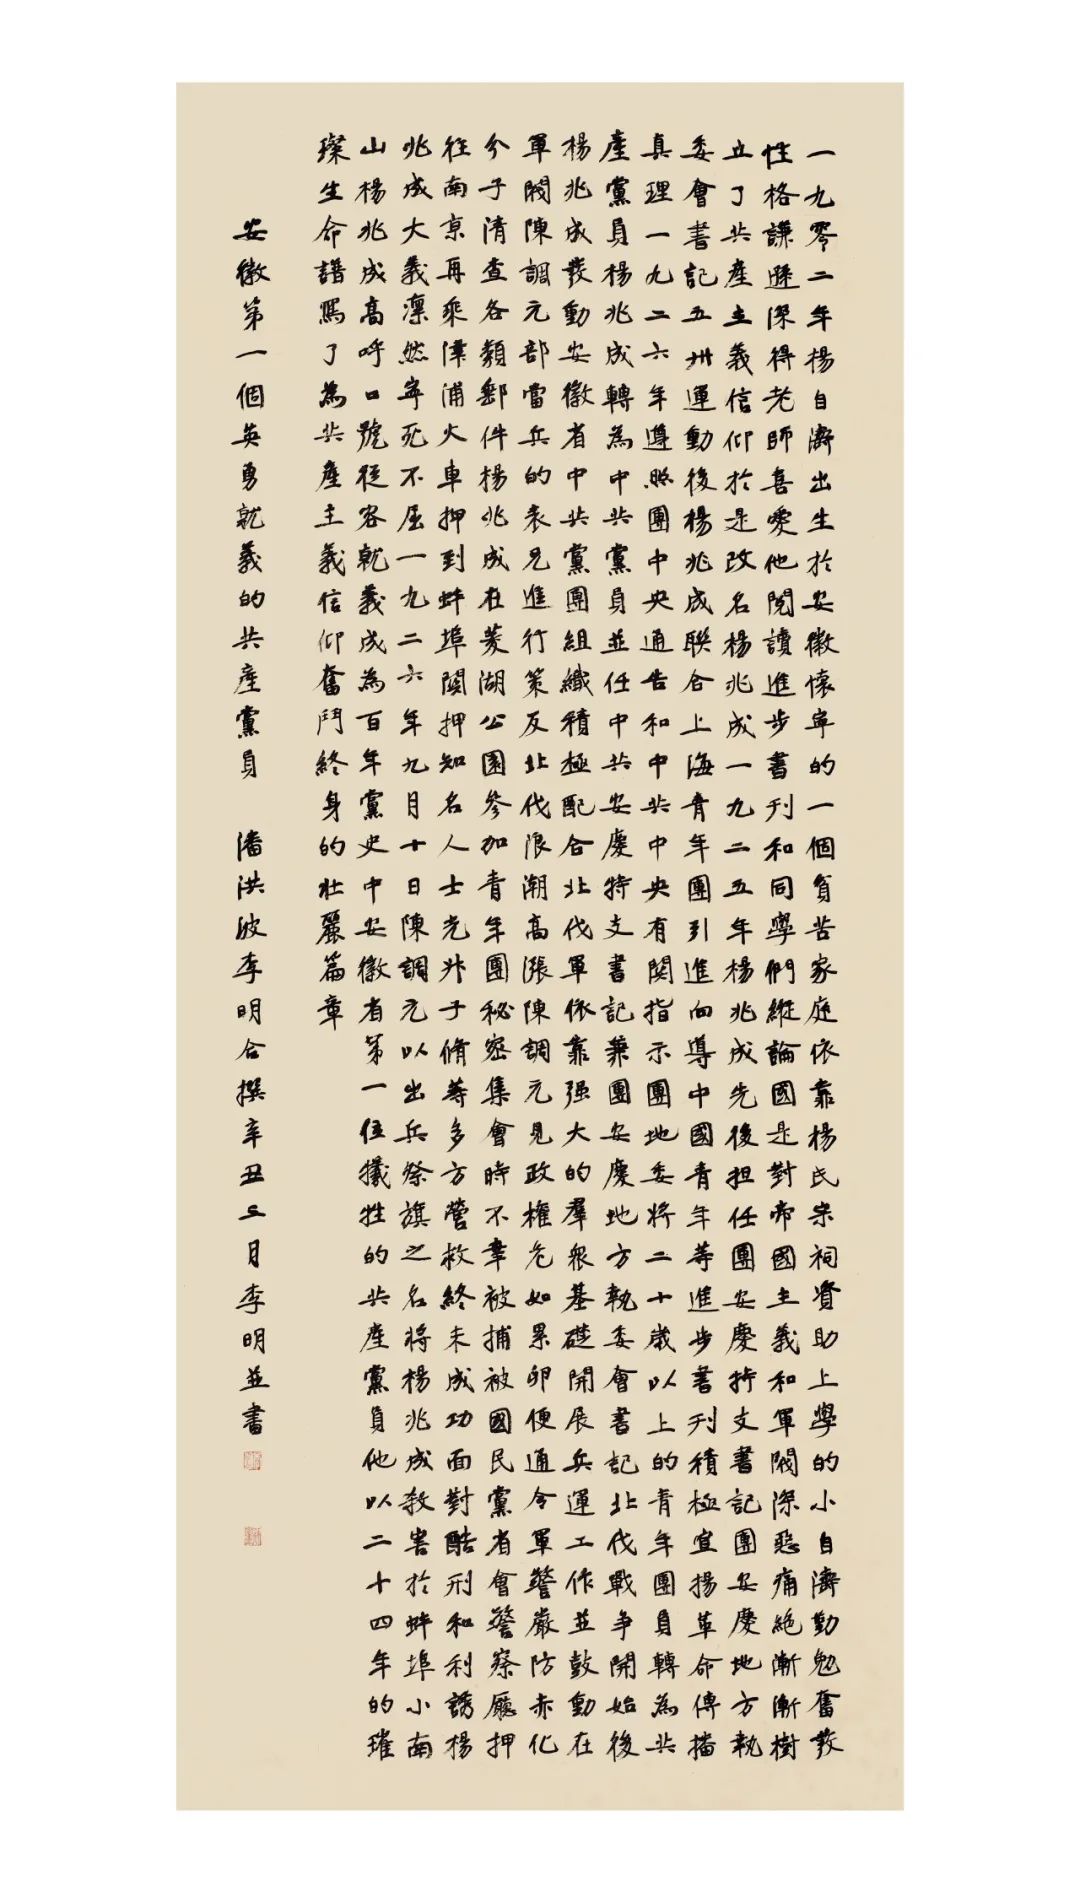 一九零二年楊自濟出生於安徽懷寧的一個貧苦家庭依靠楊氏宗祠資助上學的小自濟勤勉奮發
性格謙遜深得老師喜愛他閱讀進步書刊和同學們縱論國是對帝國主義和軍閥深惡痛絕漸漸樹
立了共產主義信仰於是改名楊兆成一九二五年楊兆成先後担任團安慶特支書記團安慶地方執
委會書記五卅運動後楊兆成聯合上海青年團引進向導中國青年等進步書刊積極宣揚革命傳播
真理一九二六年遵照團中央通告和中共中央有関指示團地委將二十歲以上的青年團員轉為共
產黨員楊兆成轉為中共黨員並任中共安慶特支書記兼團安慶地方執委會書記北伐戰爭開始後
楊兆成發動安徽省中共黨團組織積極配合北伐軍依靠强大的羣衆基礎開展兵運工作並鼓動在
軍閥陳調元部當兵的表兄進行策反北伐浪潮高漲陳調元見政權危如累卵便通令軍警嚴防赤化
分子清查各類郵件楊兆成在菱湖公園參加青年團秘密集會時不幸被捕被國民黨省會警察廳押
往南京再乘津浦火車押到蚌埠関押知名人士光升于脩等多方營救終未成功面對酷刑和利誘楊
兆成大義凛然寧死不屈一九二六年九月十日陳調元以出兵祭旗之名將楊兆成殺害於蚌埠小南
山楊兆成高呼口號從容就義成為百年黨史中安徽省第一位犧牲的共產黨員他以二十四年的璀
璨生命譜寫了為共產主義信仰奮鬥終身的壯麗篇章
安徽第一個英勇就義的共產黨員 潘洪波李明合撰辛丑 月李明並書